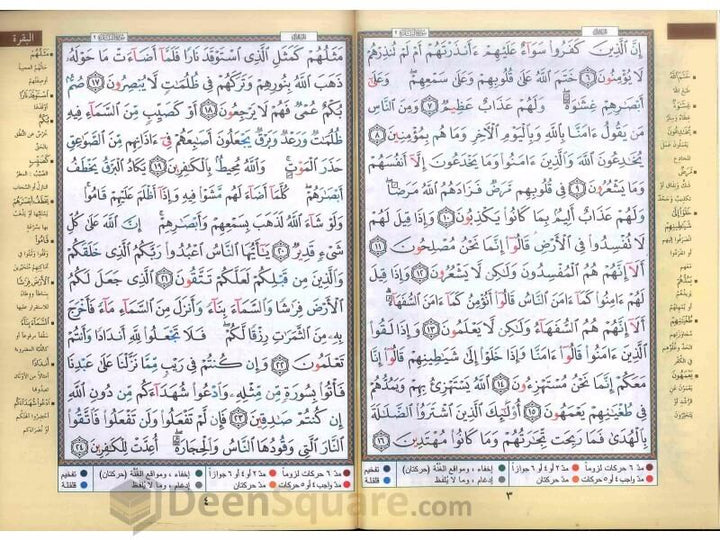 إِنَّ الَّذِينَ كَفَرُوا سَوَاءٌ عَلَيْهِمْ ءَأَنذَرْتَهُمْ أَمْ لَمْ تُنذِرْهُمْ
لَا يُؤْمِنُونَ ٦ خَتَمَ اللَّهُ عَلَى قُلُوبِهِمْ وَعَلَى سَمْعِهِمْ وَعَلَى
أَبْصَارِهِمْ غِشَاوَةٌ وَلَهُمْ عَذَابٌ عَظِيمٌ ٧ وَمِنَ النَّاسِ
مَن يَقُولُ ءَامَنَّا بِاللَّهِ وَبِالْيَوْمِ الْآخِرِ وَمَا هُم بِمُؤْمِنِينَ ٨
يُخَادِعُونَ اللَّهَ وَالَّذِينَ ءَامَنُوا وَمَا يَخْدَعُونَ إِلَّا أَنفُسَهُمْ
وَمَا يَشْعُرُونَ ٩ فِي قُلُوبِهِم مَّرَضٌ فَزَادَهُمُ اللَّهُ مَرَضًا
وَلَهُمْ عَذَابٌ أَلِيمٌ بِمَا كَانُوا يَكْذِبُونَ ١٠ وَإِذَا قِيلَ لَهُمْ
لَا تُفْسِدُوا فِي الْأَرْضِ قَالُوا إِنَّمَا نَحْنُ مُصْلِحُونَ ١١
أَلَا إِنَّهُمْ هُمُ الْمُفْسِدُونَ وَلَكِن لَّا يَشْعُرُونَ ١٢ وَإِذَا قِيلَ
لَهُمْ ءَامِنُوا كَمَا ءَامَنَ النَّاسُ قَالُوا أَنُؤْمِنُ كَمَا ءَامَنَ السُّفَهَاءُ
أَلَا إِنَّهُمْ هُمُ السُّفَهَاءُ وَلَكِن لَّا يَعْلَمُونَ ١٣ وَإِذَا لَقُوا
الَّذِينَ ءَامَنُوا قَالُوا ءَامَنَّا وَإِذَا خَلَوْا إِلَى شَيَاطِينِهِمْ قَالُوا إِنَّا
مَعَكُمْ إِنَّمَا نَحْنُ مُسْتَهْزِءُونَ ١٤ اللَّهُ يَسْتَهْزِئُ بِهِمْ وَيَمُدُّهُمْ
فِي طُغْيَانِهِمْ يَعْمَهُونَ ١٥ أُولَئِكَ الَّذِينَ اشْتَرَوُا الضَّلَالَةَ
بِالْهُدَى فَمَا رَبِحَت تِّجَارَتُهُمْ وَمَا كَانُوا مُهْتَدِينَ ١٦
مدّ ٦ حركات لزوماً مدّ ٢ أو ٤ أو ٦ جوازاً إخفاء، ومواقع الغنّة (حركتان) تفخيم
مدّ واجب ٤ أو ٥ حركات مدّ حركتان إدغام، وما لا يُلفظ قلقلة
٣
البقرة
مَثَلُهُمْ كَمَثَلِ الَّذِي اسْتَوْقَدَ نَارًا فَلَمَّا أَضَاءَتْ مَا حَوْلَهُ
ذَهَبَ اللَّهُ بِنُورِهِمْ وَتَرَكَهُمْ فِي ظُلُمَاتٍ لَّا يُبْصِرُونَ ١٧ صُمٌّ
بُكْمٌ عُمْيٌ فَهُمْ لَا يَرْجِعُونَ ١٨ أَوْ كَصَيِّبٍ مِّنَ السَّمَاءِ فِيهِ
ظُلُمَاتٌ وَرَعْدٌ وَبَرْقٌ يَجْعَلُونَ أَصَابِعَهُمْ فِي ءَاذَانِهِم مِّنَ الصَّوَاعِقِ
حَذَرَ الْمَوْتِ وَاللَّهُ مُحِيطٌ بِالْكَافِرِينَ ١٩ يَكَادُ الْبَرْقُ يَخْطَفُ
أَبْصَارَهُمْ كُلَّمَا أَضَاءَ لَهُم مَّشَوْا فِيهِ وَإِذَا أَظْلَمَ عَلَيْهِمْ قَامُوا
وَلَوْ شَاءَ اللَّهُ لَذَهَبَ بِسَمْعِهِمْ وَأَبْصَارِهِمْ إِنَّ اللَّهَ عَلَى كُلِّ
شَيْءٍ قَدِيرٌ ٢٠ يَاأَيُّهَا النَّاسُ اعْبُدُوا رَبَّكُمُ الَّذِي خَلَقَكُمْ
وَالَّذِينَ مِن قَبْلِكُمْ لَعَلَّكُمْ تَتَّقُونَ ٢١ الَّذِي جَعَلَ لَكُمُ
الْأَرْضَ فِرَاشًا وَالسَّمَاءَ بِنَاءً وَأَنزَلَ مِنَ السَّمَاءِ مَاءً فَأَخْرَجَ
بِهِ مِنَ الثَّمَرَاتِ رِزْقًا لَّكُمْ فَلَا تَجْعَلُوا لِلَّهِ أَندَادًا وَأَنتُمْ
تَعْلَمُونَ ٢٢ وَإِن كُنتُمْ فِي رَيْبٍ مِّمَّا نَزَّلْنَا عَلَى عَبْدِنَا
فَأْتُوا بِسُورَةٍ مِّن مِّثْلِهِ وَادْعُوا شُهَدَاءَكُم مِّن دُونِ اللَّهِ
إِن كُنتُمْ صَادِقِينَ ٢٣ فَإِن لَّمْ تَفْعَلُوا وَلَن تَفْعَلُوا فَاتَّقُوا
النَّارَ الَّتِي وَقُودُهَا النَّاسُ وَالْحِجَارَةُ أُعِدَّتْ لِلْكَافِرِينَ ٢٤
مدّ ٦ حركات لزوماً مدّ ٢ أو ٤ أو ٦ جوازاً إخفاء، ومواقع الغنّة (حركتان) تفخيم
مدّ واجب ٤ أو ٥ حركات مدّ حركتان إدغام، وما لا يُلفظ قلقلة
٤
DeenSquare.com